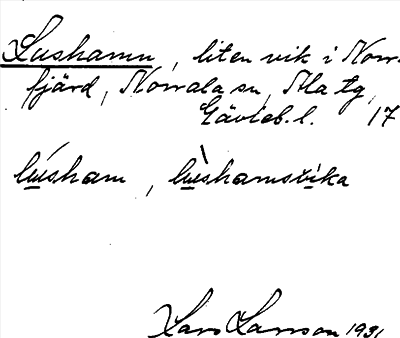 Lushamn, liten vik i Norr-
fjärd, Norrala sn, Ala tg,
Gävleb. l. 17
lu̲sham, lu̲shamsvi̲ka
Lars Larsson 1931